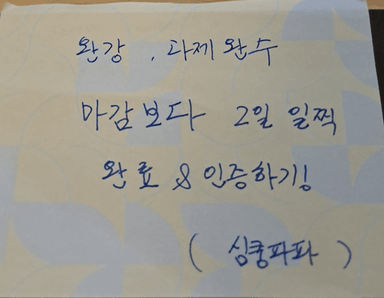 완강 , 과제 완수
마감보다 2일 일찍
완료 & 인증하기!
( 심쿵파파 )